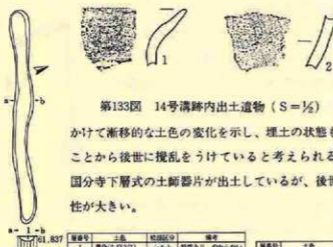 1
2
第133図 14号溝跡内出土遺物（S＝½）
かけて漸移的な土色の変化を示し、埋土の状態も
ことから後世に攪乱をうけていると考えられる
国分寺下層式の土師器片が出土しているが、後世
性が大きい。
a b
a b
a- 1 -b
61.837
層番号 土色 粒径区分 備考
層番号 土色